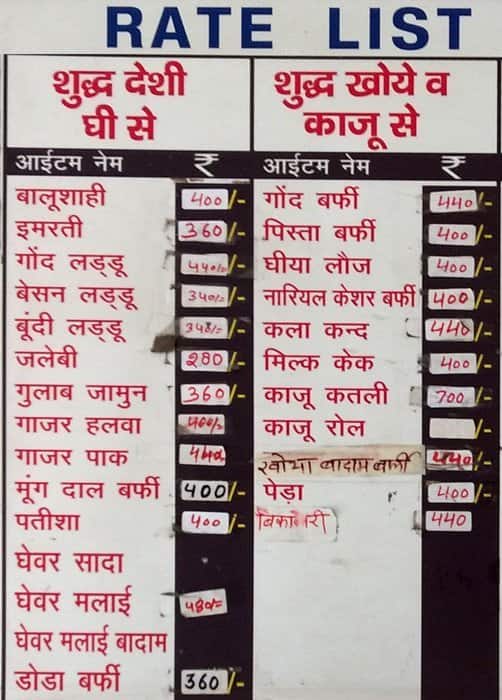 RATE LIST
शुद्ध देशी
घी से
आईटम नेम ₹
बालूशाही 400/-
इमरती 360/-
गोंद लड्डू 440/-
बेसन लड्डू 340/-
बूंदी लड्डू 348/-
जलेबी 280/-
गुलाब जामुन 360/-
गाजर हलवा 400/-
गाजर पाक 440
मूंग दाल बर्फी 400/-
पतीशा 400/-
घेवर सादा
घेवर मलाई 480/-
घेवर मलाई बादाम
डोडा बर्फी 360/-
शुद्ध खोये व
काजू से
आईटम नेम ₹
गोंद बर्फी 440/-
पिस्ता बर्फी 400/-
घीया लौज 400/-
नारियल केशर बर्फी 400/-
कला कन्द 440/-
मिल्क केक 400/-
काजू कतली 700/-
काजू रोल /-
खोया बादाम बर्फी 440/-
पेड़ा 400/-
440